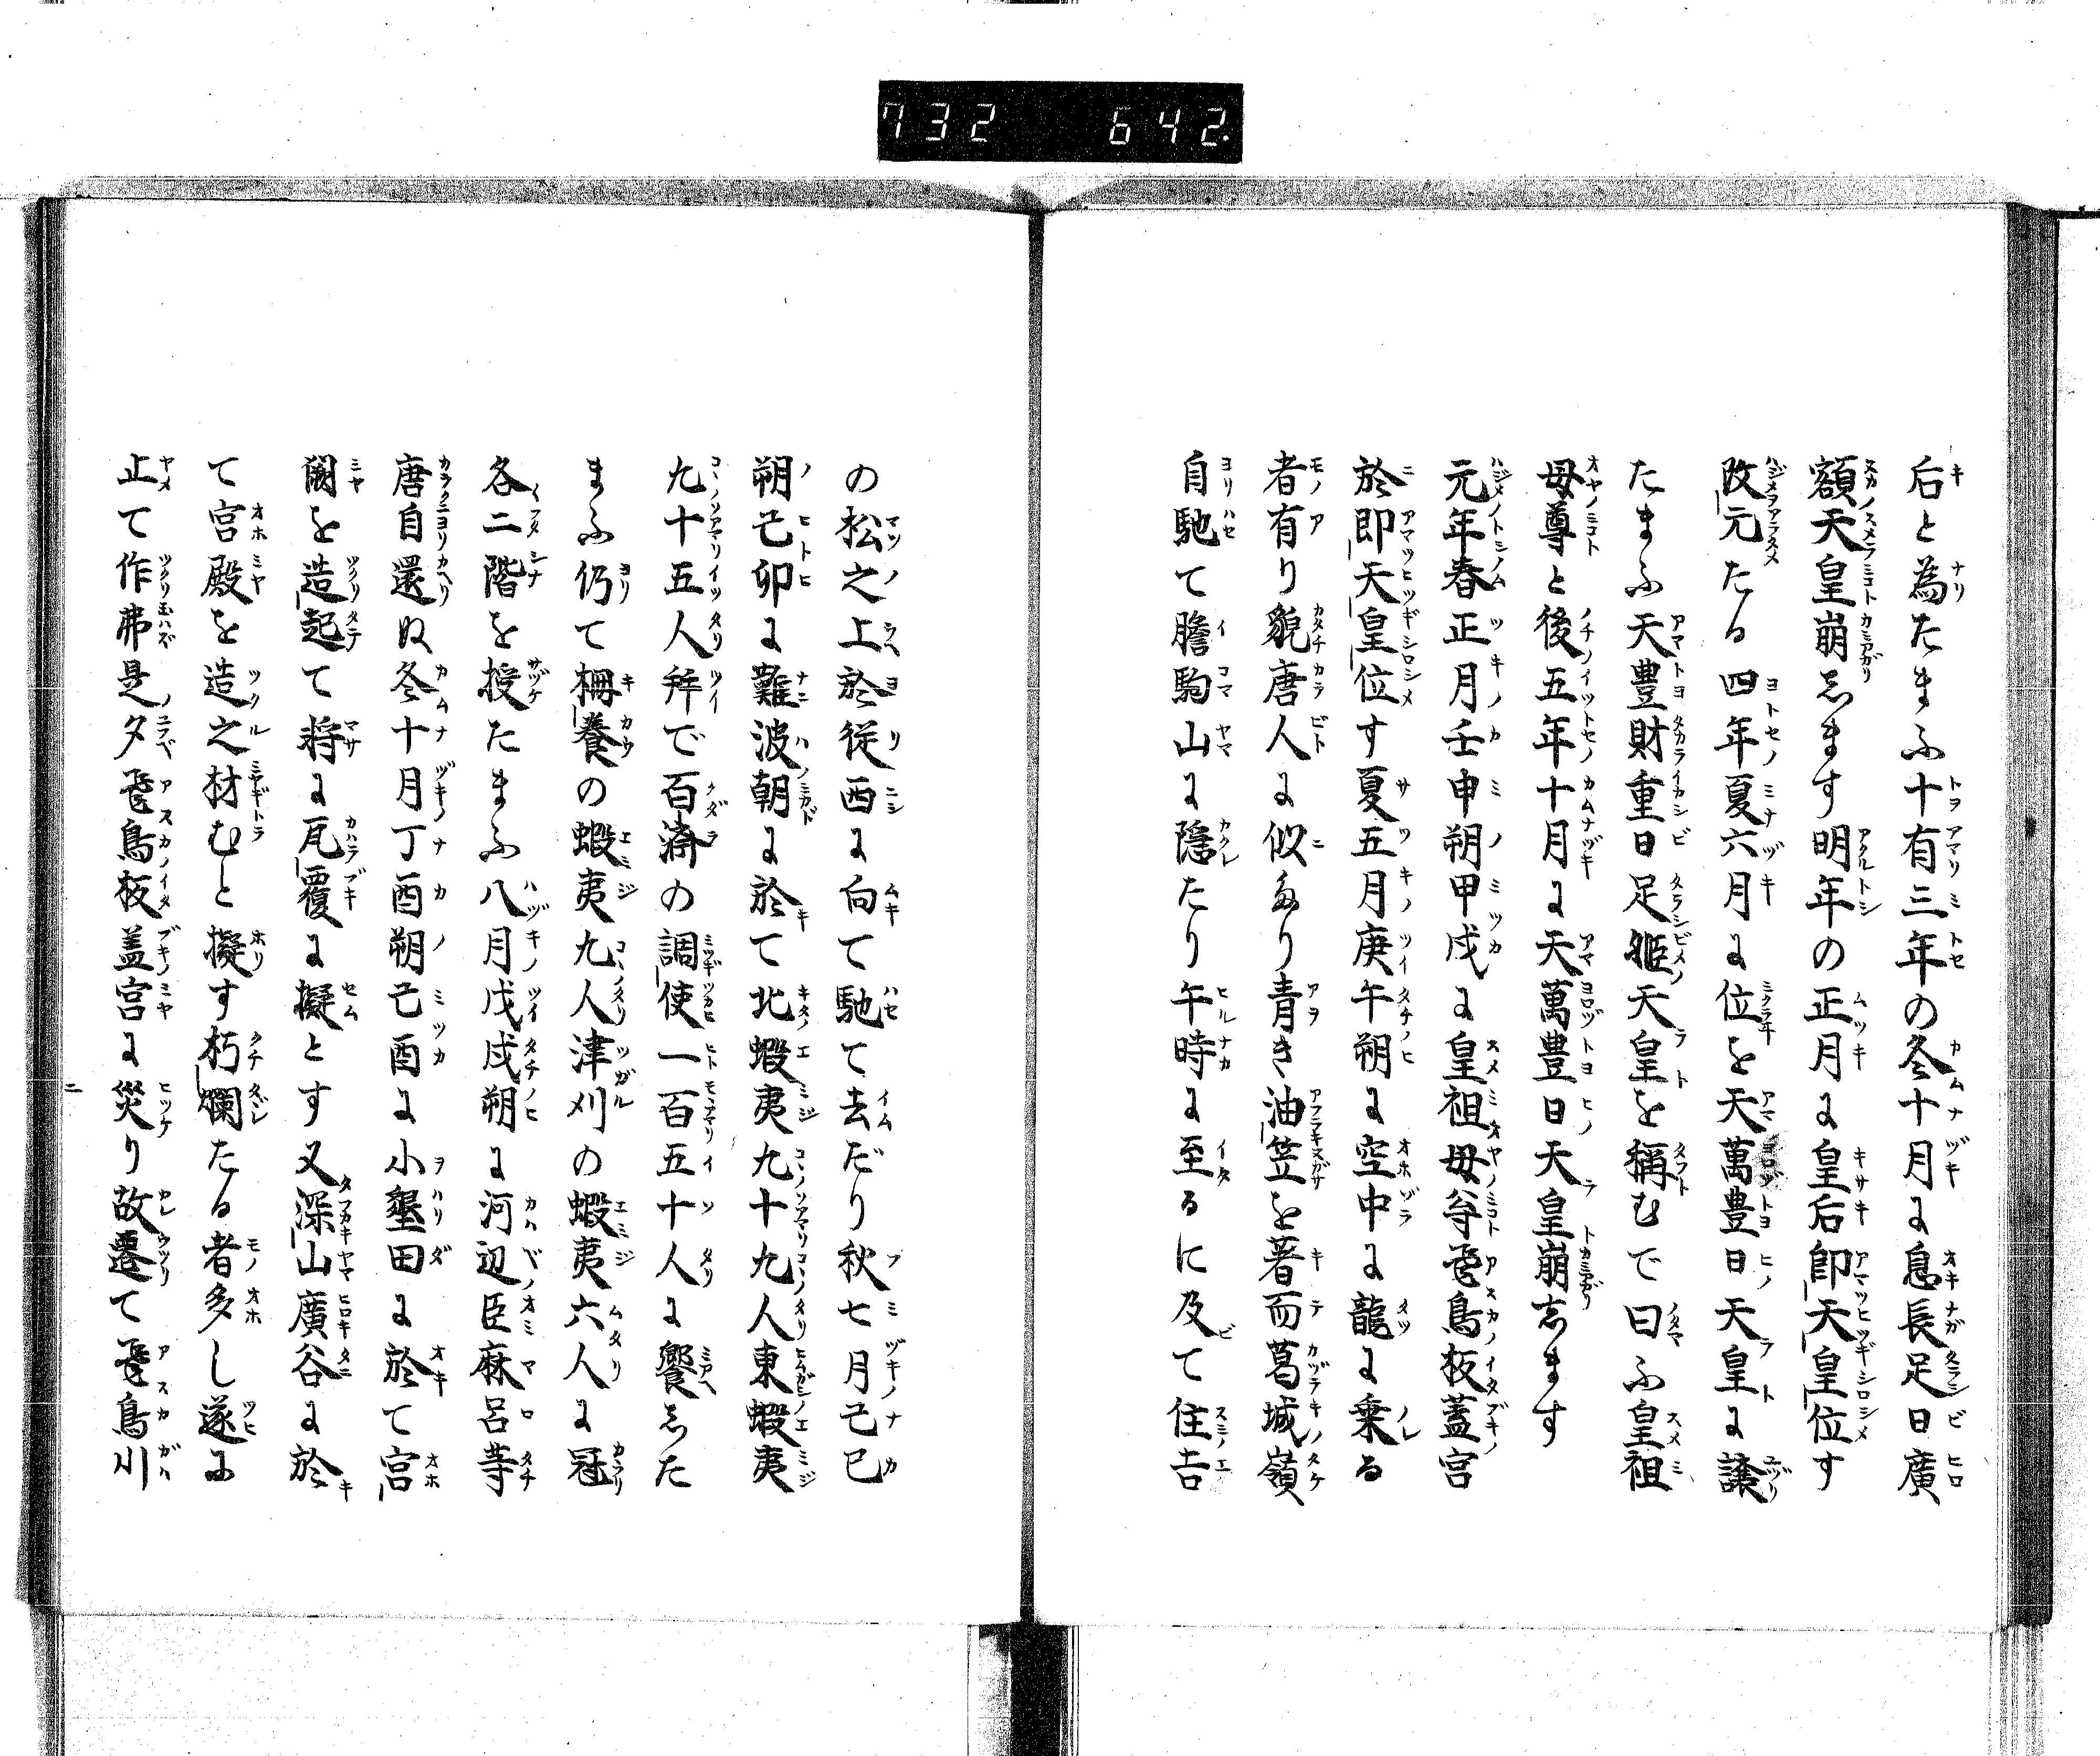 732 642.
后と為たまふ十有三年の冬十月に息長足日廣
額天皇崩ます明年の正月に皇后即天皇位す
改元たる四年夏六月に位を天萬豊日天皇に譲
たまふ天豊財重日足姫天皇を稱むで曰ふ皇祖
母尊と後五年十月に天萬豊日天皇崩ます
元年春正月壬申朔甲戌に皇祖母尊飛鳥板蓋宮
於即天皇位す夏五月庚午朔に空中に龍に乗る
者有り貌唐人に似たり青き油笠を著而葛城嶺
自馳て膽駒山に隠たり午時に至るに及て住吉
の松之上於從西に向て馳て去だり秋七月己巳
朔己卯に難波朝に於て北蝦夷九十九人東蝦夷
九十五人并で百濟の調使一百五十人に饗た
まふ仍て柵養の蝦夷九人津刈の蝦夷六人に冠
各二階を授たまふ八月戊戌朔に河辺臣麻呂等
唐自還ぬ冬十月丁酉朔己酉に小墾田に於て宮
闕を造起て将に瓦覆に擬とす又深山廣谷に於
て宮殿を造之材むと擬す朽爛たる者多し遂に
止て作弗是夕飛鳥板盖宮に災り故遷て飛鳥川
二